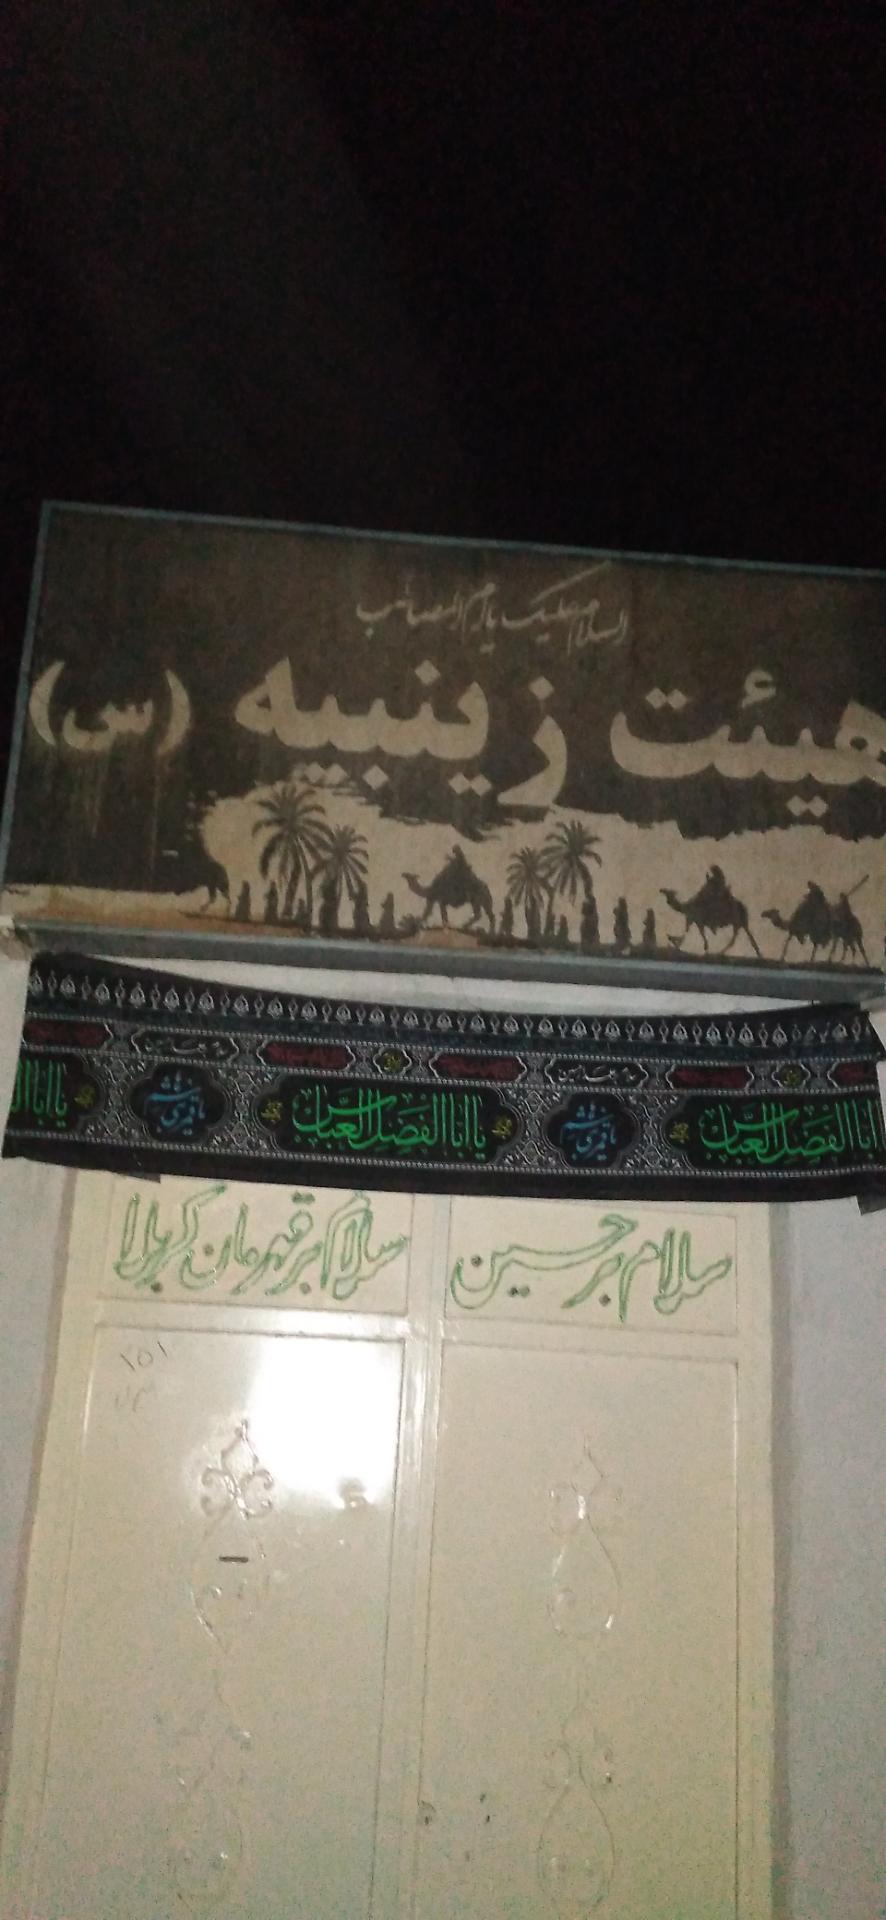 السلام علیک یا ام المصائب
هیئت زینبیه (س)
یا اباالفضل العباس یا قمر بنی هاشم یا اباالفضل العباس یا قمر بنی هاشم یا ابا
سلام بر حسین
سلام بر قهرمان کربلا
۲۵۱